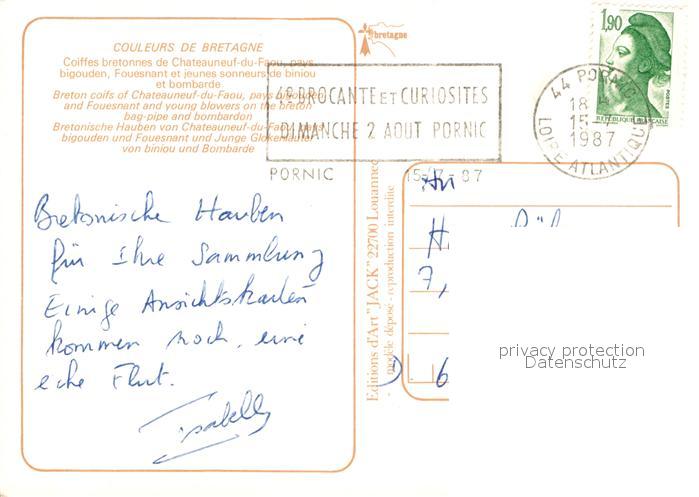 COULEURS DE BRETAGNE
Coiffes bretonnes de Chateauneuf-du-Faou, pays
bigouden, Fouesnant et jeunes sonneurs de biniou
et bombarde
Breton coifs of Chateauneuf-du-Faou, pays bigouden
and Fouesnant and young blowers on the breton
bag-pipe and bombardon
Bretonische Hauben von Chateauneuf-du-Faou, pays
bigouden und Fouesnant und Junge Glokenläuter
von biniou und Bombarde
bretagne
4e BROCANTE ET CURIOSITES
DIMANCHE 2 AOUT PORNIC
PORNIC
15-7-87
1,90
POSTES
REPUBLIQUE FRANÇAISE
44 PORNIC
18 H
15-7
1987
LOIRE ATLANTIQUE
Bretonische Hauben
für Ihre Sammlung
Einige Ansichtskarten
kommen noch, eine
eche Flut.
Isabelle
Editions d'Art "JACK" 22700 Louannec
modèle déposé - reproduction interdite
An
H
7,
D 6
privacy protection
Datenschutz